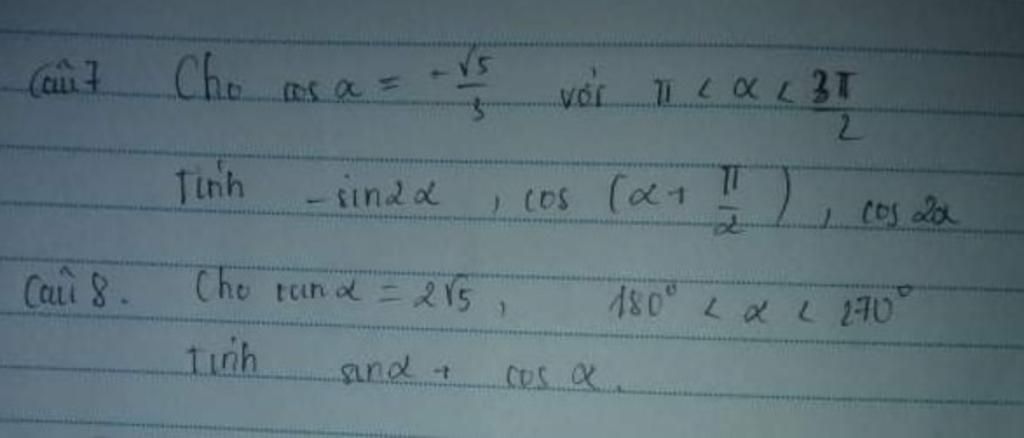 Câu 7 Cho cos α = -√5/3 với π < α < 3π/2
Tính - sin2α , cos (α + π/2) , cos 2α
Câu 8. Cho tan α = 2√5 , 180° < α < 270°
Tính sinα + cos α.